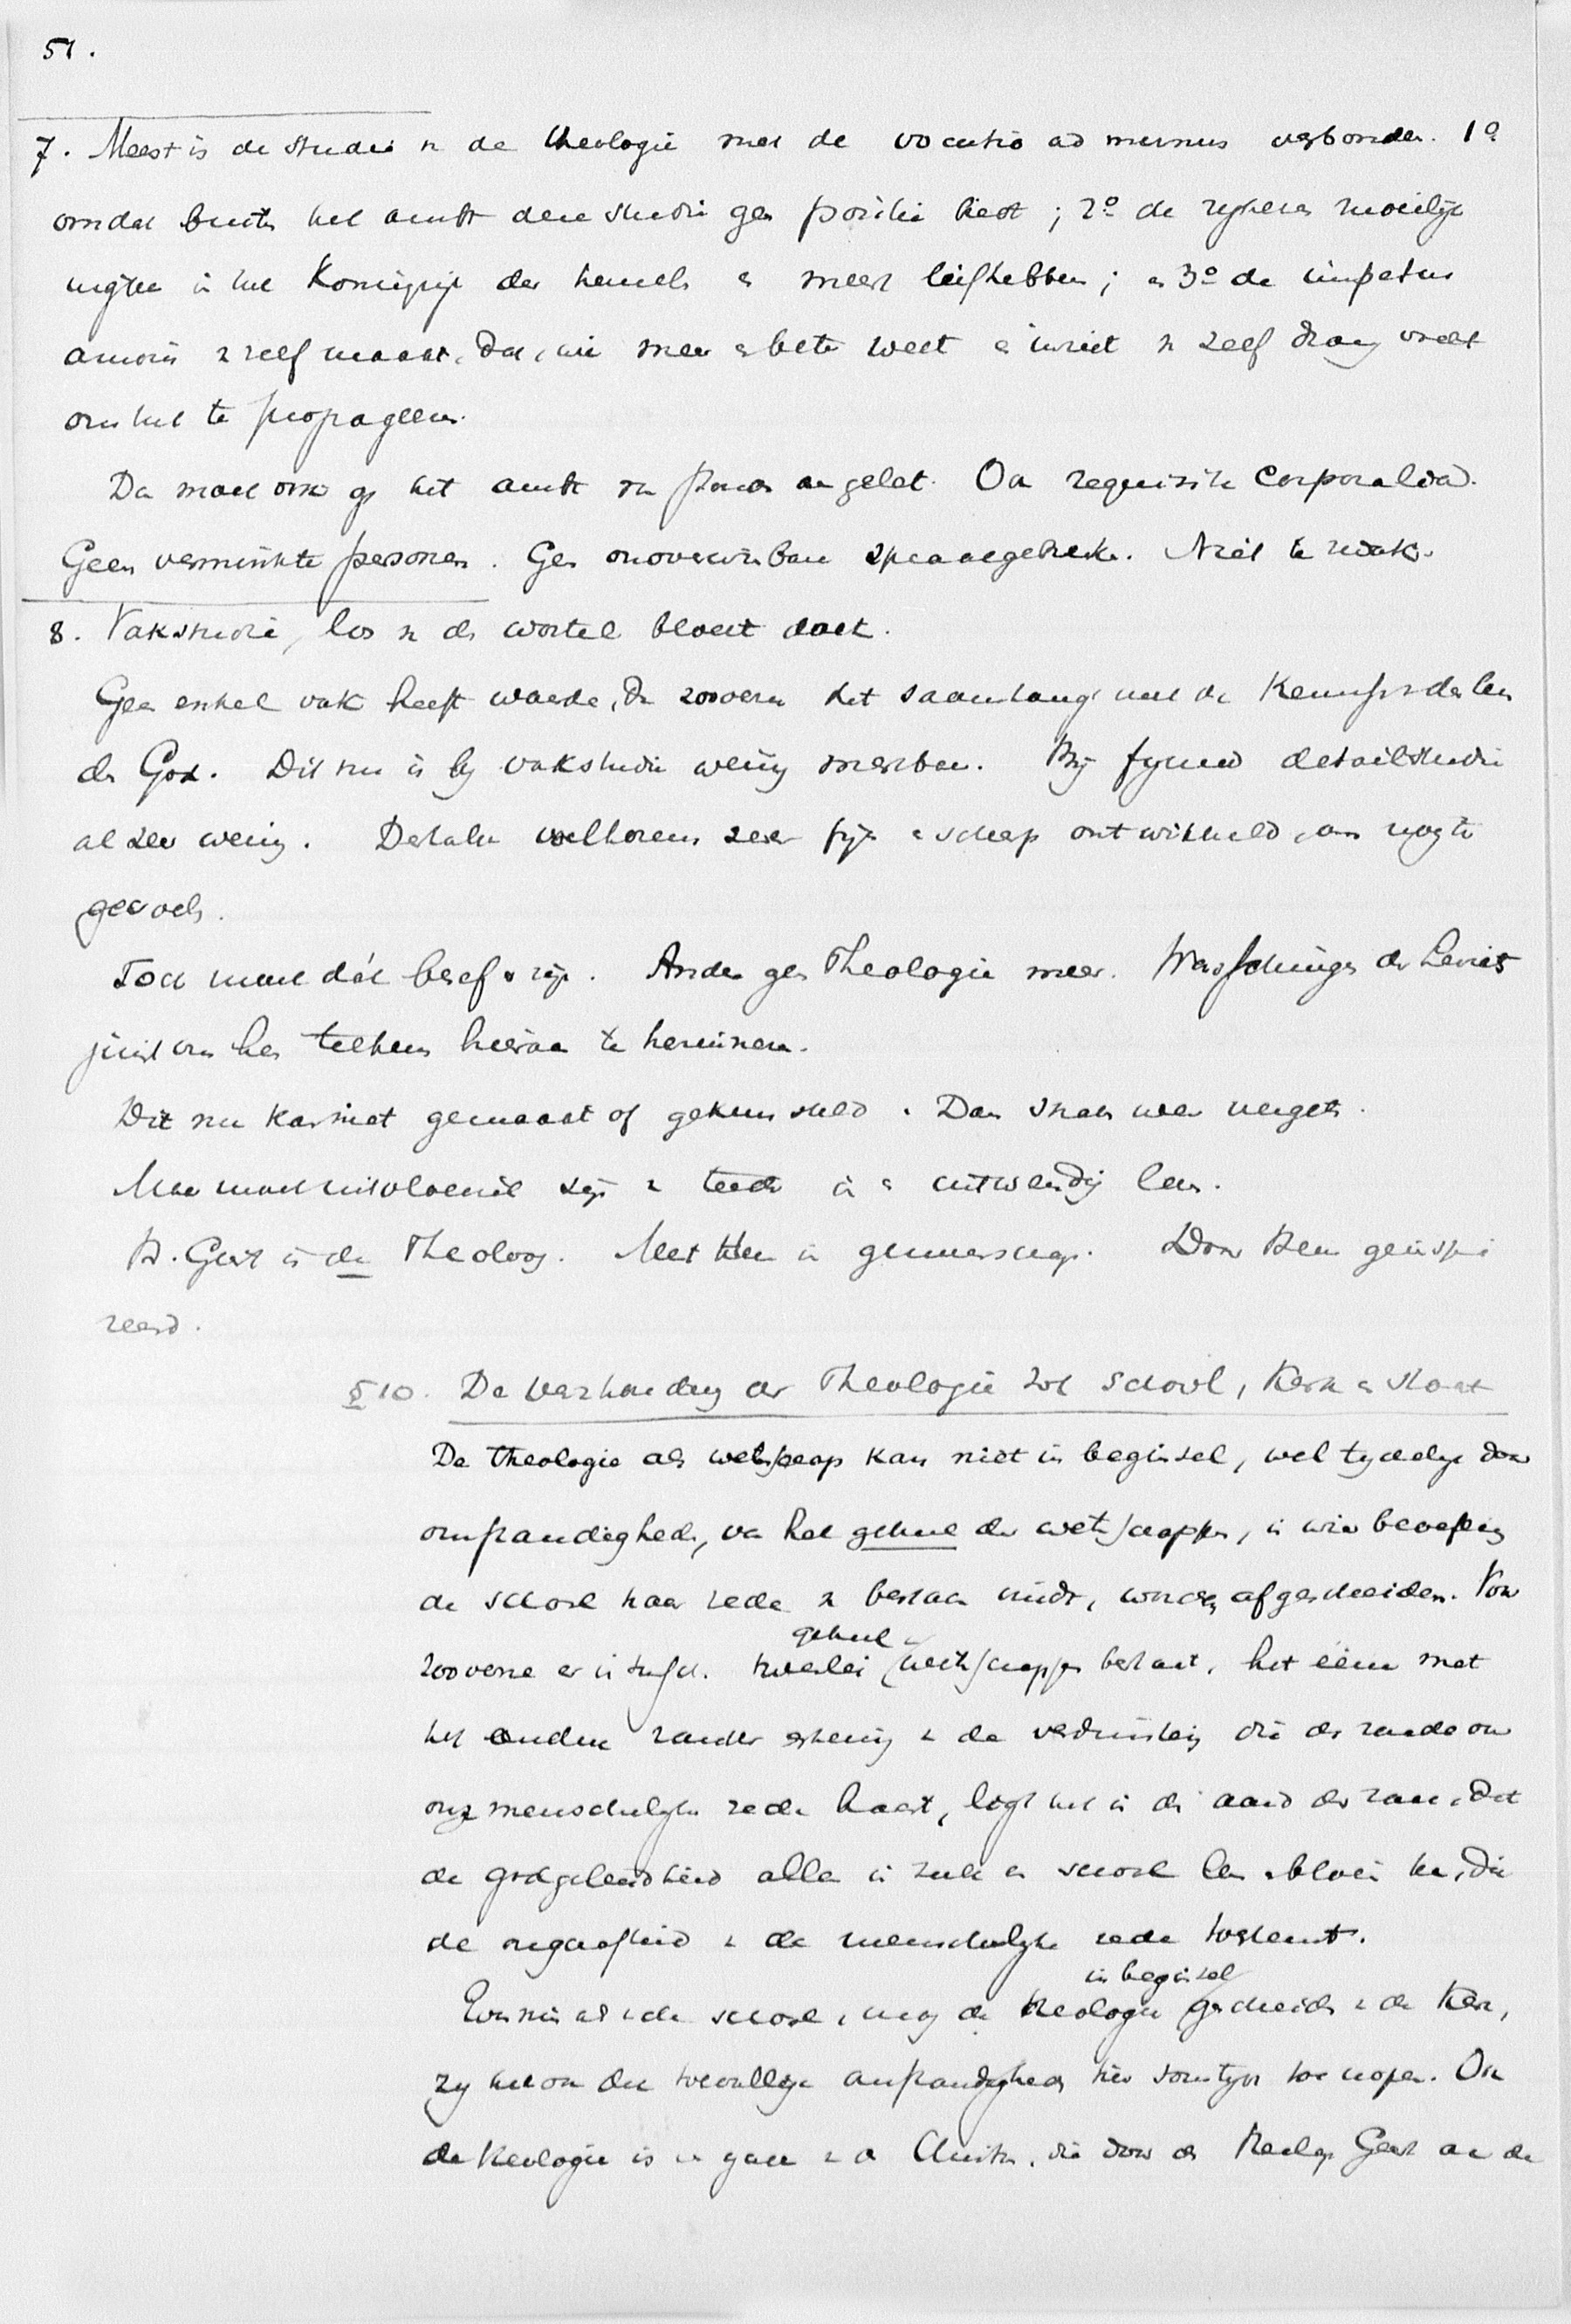 51.
7. Meest is de studie v de theologie met de vocatio ad munus verbonden. 1º
omdat buiten het ambt deze studie gen positie biedt; 2º de rykeren moeilijk
ingaan in het Koningrijk der hemelen en meest liefhebben; en 3º de impetus
amoris v zelf maakt, dat, wie meer en beter weet en inziet v zelf drang voelt
om het te propageeren.
De moet ook op het ambt
Geen verminkte personen. Gen onoverwinbare spraakgebreken. Niet te zwak.
8. Vakstudie, los v de wortel bloeit doet.
Geen enkel vak heeft waarde, dan zooveren het saamhangt met de Kennis v den levenden
den God. Dit nu is by vakstudie weinig merkbaar. Bij fynere detailstudie
al zeer weinig. Details zeer fijn en scherp ontwikkeld om nog te
gevoelen.
Toch moet dat besef er zijn. Anders gen Theologie meer. Wasschingen der Levieten
juist om hen telkens hieraan te herinneren.
Dit nu kan niet gemaakt of gekunsteld. Dan straks weer vergeten.
Maar moet uitvloeisel zijn v in en uitwendig leven.
H. Geest is de Theoloog. Met Hem in gemeenschap. Door Hem geinspi
reerd.
§10. De Verhouding der Theologie tot School, Kerk en Staat
De theologie als wetenschap kan niet in beginsel, wel tydelyk door
omstandigheden, van het geheel der wetenschappen, in wier beoefening
de school haar rede v bestaan vindt, worden afgescheiden. Voor
zooverre er intusschen tweeërlei geheel v wetenschappen bestaat, het ééne met
het andere zonder erkening v de verduistering die de zonde over
onze menschelyke rede bracht, ligt het in den aard der zaak, dat
de godgeleerdheid alleen in zulk een school leven en bloeien kan, die
de ongaafheid v de menschelyke rede toestemt.
Evenmin als v de school, mag de theologie in beginsel gescheiden v de Kerk,
zy het ook dat toevallige omstandigheden hier somtyds toe nopen. Ook
de theologie is een gave v den Christus, die door den Heilige Geest aan de